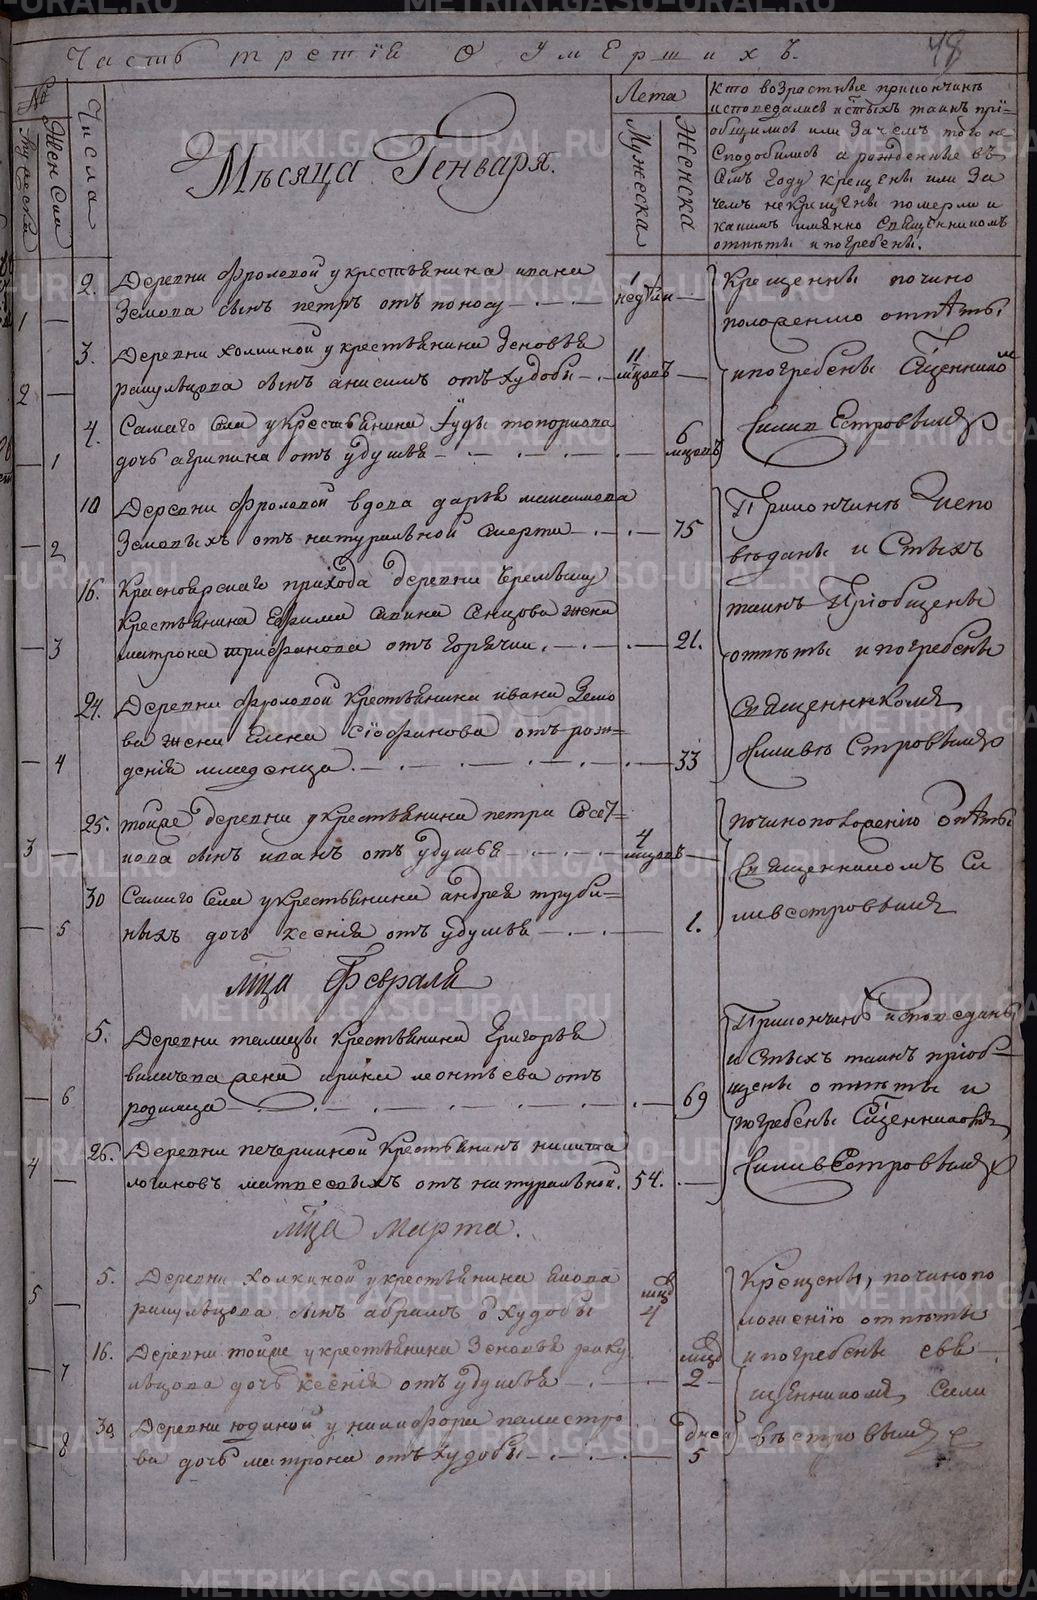 48
Часть третїя О Умершихъ.
№
Мужеска
Женска
Числа
Лета
Мужеска
Женска
Кто возрастные прикончинѣ
исповедались и стыхъ таинъ прї-
общились или зачемъ того не
Сподобились а рожденные въ
семъ Году крещены или За
чемъ некрещены померли и
какимъ имянно Священникомъ
отпѣты и погребены.
Мѣсяца Генваря.
1 — 2. Деревни Фроловой у крестьянина ивана 1
Земова сынъ петръ отъ поносу недѣли —
Крещены по чино
положению отпѣты
и погребены Сщенником
Силив Естровымъ
2 — 3. Деревни холкиной у крестьянина Зеновья 11
ракульцова сынъ анисимъ отъ худобы мцовъ —
— 1 4. Самаго Села у Крестьянина Iуды топоркова 6
дочь агрипина отъ удушья — мцовъ
— 2 10 Деревни Фроловой вдова дарья максимова
Земовыхъ отъ натуральной смерти — 75
Прикончинѣ Испо
веданы и Стыхъ
таинъ Прїобщены
отпѣты и погребены
Священникомъ
Силивѣ Стровымъ
16. Красноярскаго прихода деревни
Крестьянина Ефрима Сенцова жена
— 3 матрона трифанова отъ горячки. — 21.
24. Деревни Фроловой Крестьянина ивана Земо
ва жена Елена отъ рож=
— 4 денїя младенца. — 33
25. тойже деревни у крестьянина петра
3 — сынъ иванъ отъ удушья 4 мцовъ —
починоположенїю отпѣты
Священникомъ Си
ливестровымъ
30 Самаго Села у крестьянина андрея труби=
— 5 ныхъ дочь ксенїя отъ удушья — 1.
мца Февраля
5. Деревни телицы Крестьянина Григорья
жена ирина леонтьева отъ
— 6 родимца — 69
Прикончинѣ исповеданы
и Стыхъ таинъ прїоб-
щены отпѣты и
погребены Сщенникомъ
Силивѣ Стровымъ
26. Деревни печеркиной Крестьянинъ никита
4 — логиновъ матвеевыхъ отъ натуральной. 54. —
мца Марта.
5. Деревни Холкиной у крестьянина якова мцъ
5 — ракульцова сынъ абрамъ о худобы 4
Крещены, починопо
ложенїю отпѣты
и погребены свя-
щенникомъ Сили
вѣстровымъ
16. Деревни тойже у крестьянина Зеновья раку мцъ
— 7 льцова дочь ксенїя отъ удушья — 2
30 Деревни юдиной у никифора калистро дней
— 8 ва дочь матрона отъ худобы — 5
METRIKI.GASO-URAL.RU